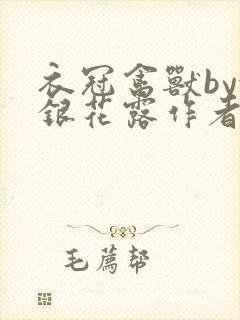 衣冠禽獸by
銀花露作者
毛薦幇